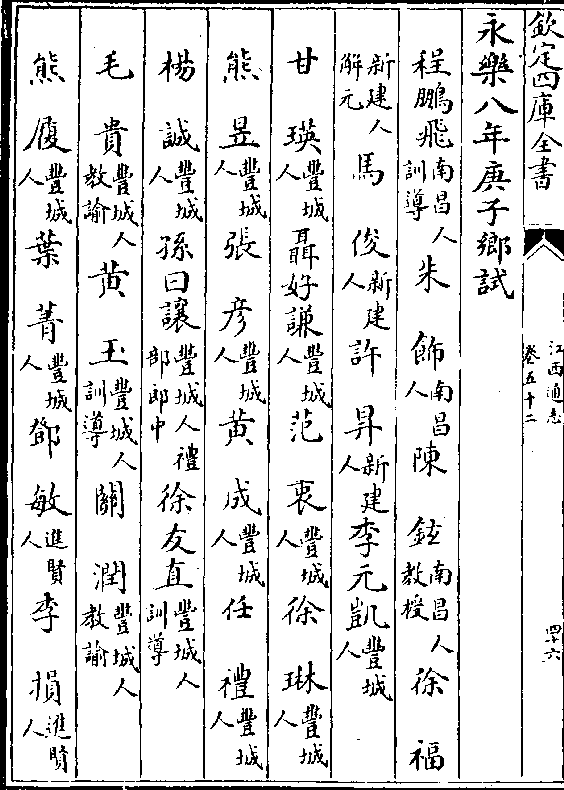 欽定四庫全書
江西通志
卷五十二
四十六
永樂八年庚子鄉試
程鵬飛南昌人訓導 朱飾南昌人 陳鉉南昌人教授 徐福
新建人解元 馬俊新建人 許昇新建人 李元凱豐城人
甘瑛豐城人 聶好謙豐城人 范衷豐城人 徐琳豐城人
熊昱豐城人 張彥豐城人 黃成豐城人 任禮豐城人
楊誠豐城人 孫曰讓豐城人禮部郎中 徐友直豐城人訓導
毛貴豐城人教諭 黃玉豐城人訓導 關潤豐城人教諭
熊履豐城人 葉菁豐城人 鄧敏進賢人 李損進賢人